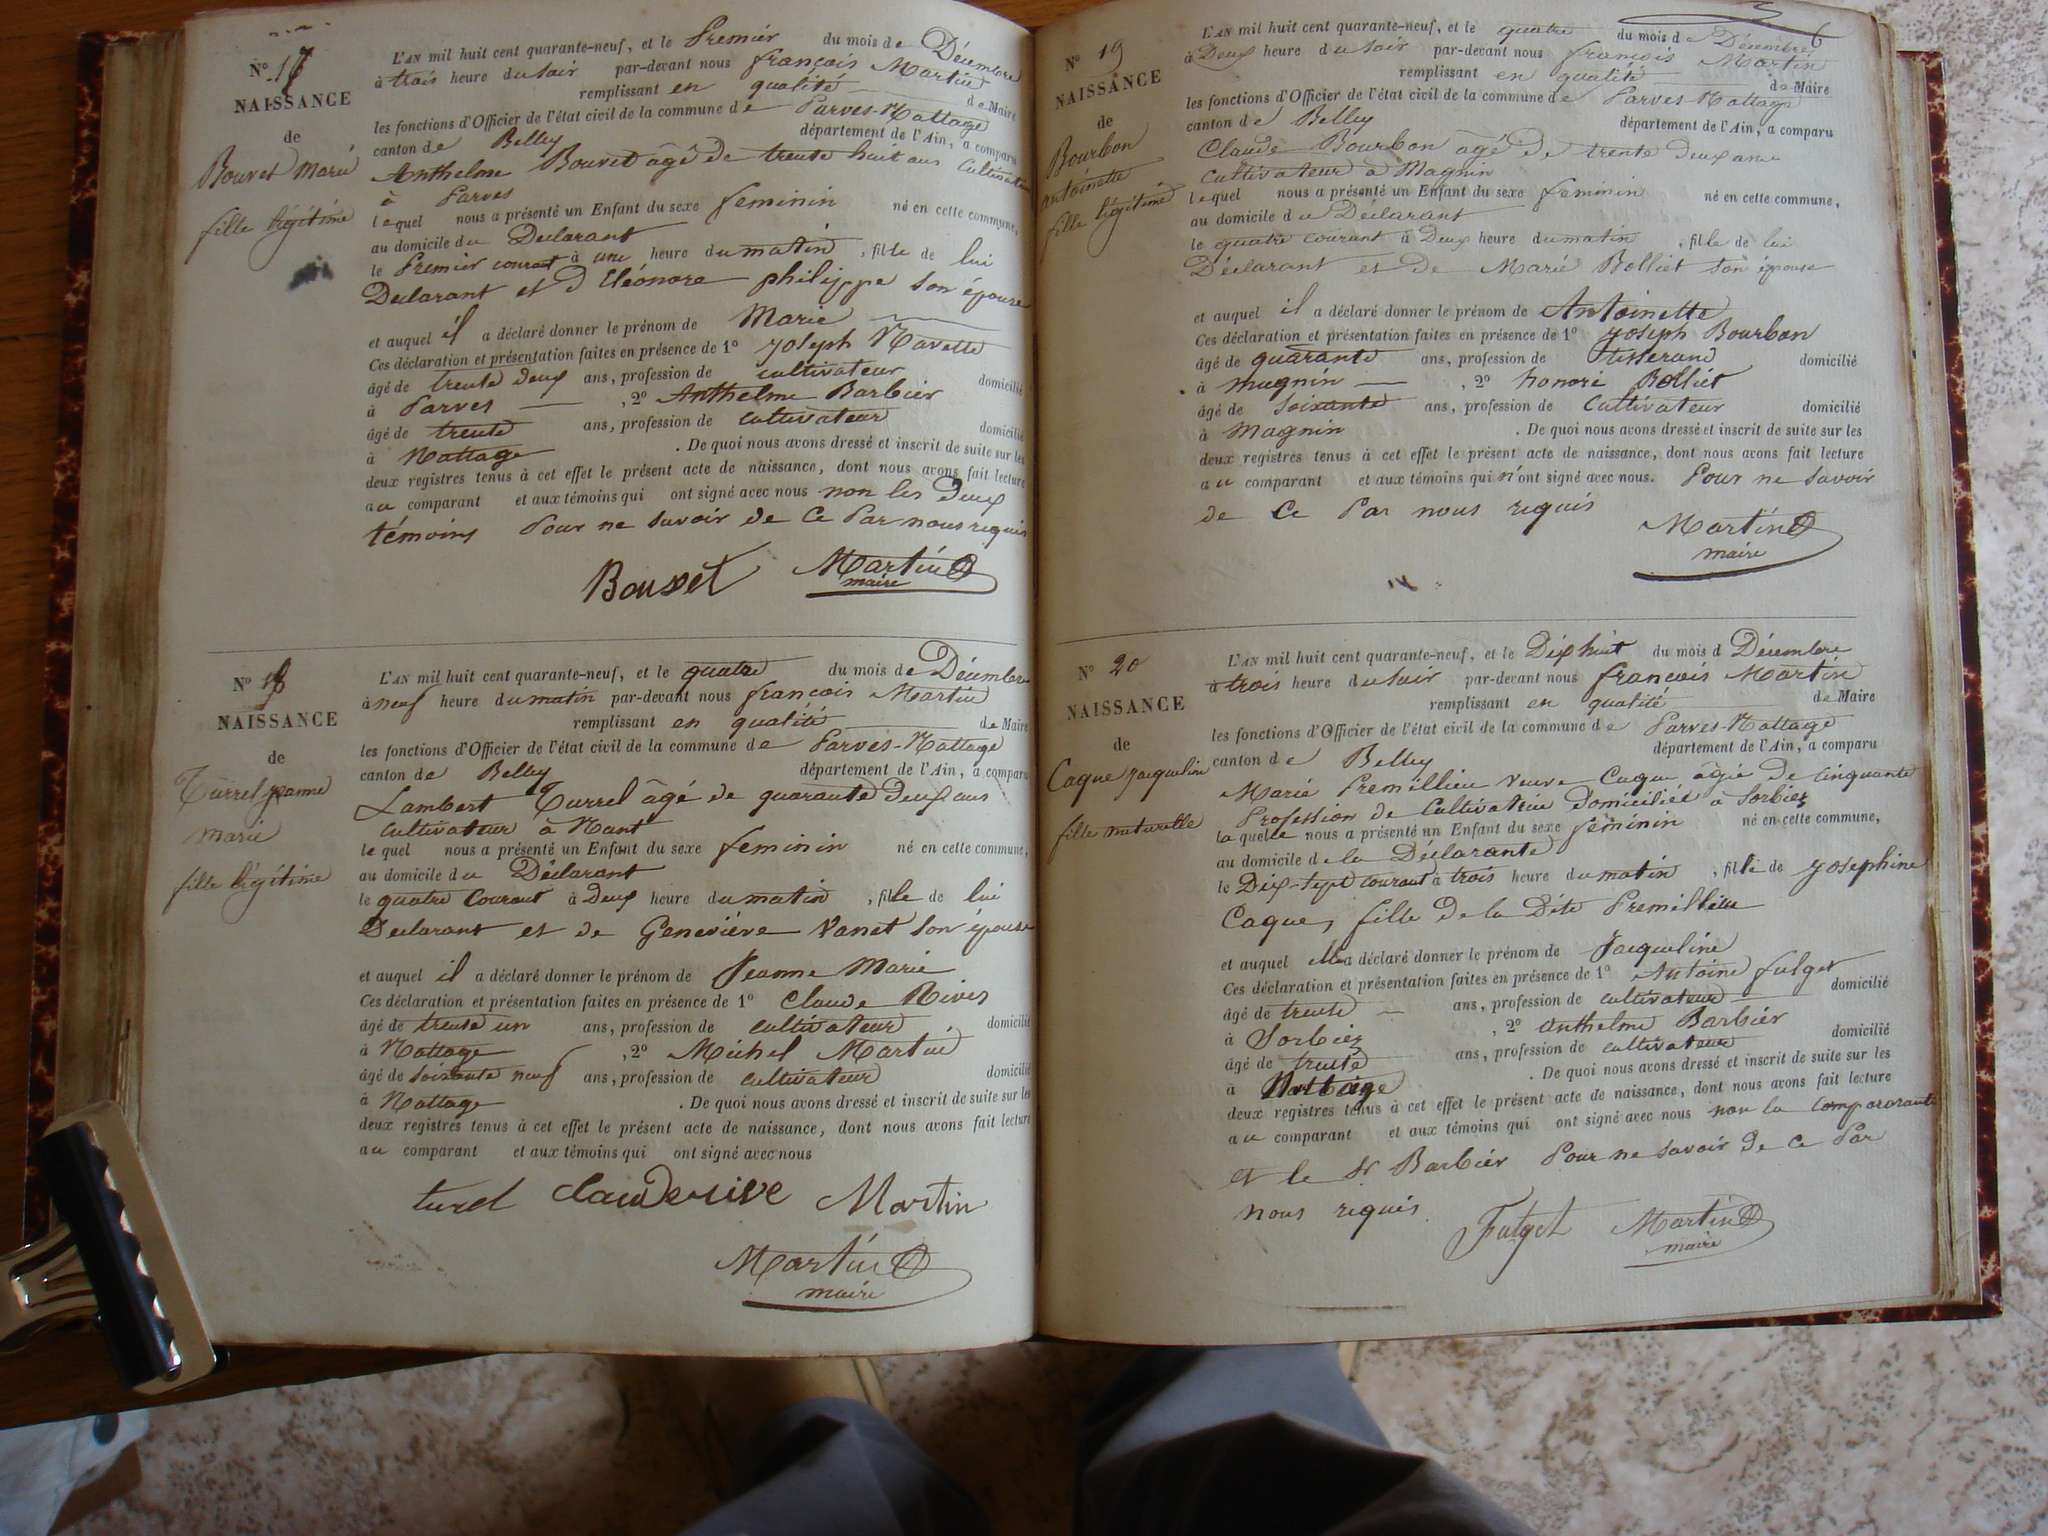 N° 17
NAISSANCE
de
Bouvet Marie
fille légitime
L'AN mil huit cent quarante-neuf, et le Premier du mois de Décembre
à trois heure du soir par-devant nous françois Martin
remplissant en qualité de Maire
les fonctions d'Officier de l'état civil de la commune de Parves-Nattage
canton de Belley département de l'Ain, a comparu
Anthelme Bouvet âgé de trente huit ans cultivateur
à Parves
lequel nous a présenté un Enfant du sexe feminin né en cette commune,
au domicile du Déclarant
le Premier courant à une heure du matin, fille de lui
Declarant et d'Eléonore philippe son épouse
et auquel il a déclaré donner le prénom de Marie
Ces déclaration et présentation faites en présence de 1° Joseph Navette
âgé de trente deux ans, profession de cultivateur domicilié
à Parves , 2° Anthelme Barbier
âgé de trente ans, profession de cultivateur domicilié
à Nattage . De quoi nous avons dressé et inscrit de suite sur les
deux registres tenus à cet effet le présent acte de naissance, dont nous avons fait lecture
au comparant et aux témoins qui ont signé avec nous non les deux
témoins Pour ne savoir de ce Par nous requis
Bouvet Martin
maire
N° 18
NAISSANCE
de
Turrel jeanne
marie
fille légitime
L'AN mil huit cent quarante-neuf, et le quatre du mois de Décembre
à neuf heure du matin par-devant nous françois Martin
remplissant en qualité de Maire
les fonctions d'Officier de l'état civil de la commune de Parves-Nattage
canton de Belley département de l'Ain, a comparu
Lambert Turrel âgé de quarante deux ans
cultivateur à Nant
lequel nous a présenté un Enfant du sexe feminin né en cette commune,
au domicile du Déclarant
le quatre Courant à Deux heure du matin , fille de lui
Declarant et de Geneviéve Vanet son épouse
et auquel il a déclaré donner le prénom de Jeanne Marie
Ces déclaration et présentation faites en présence de 1° Claude Rives
âgé de trente un ans, profession de cultivateur domicilié
à Nattage , 2° Michel Martin
âgé de soixante neuf ans, profession de cultivateur domicilié
à Nattage . De quoi nous avons dressé et inscrit de suite sur les
deux registres tenus à cet effet le présent acte de naissance, dont nous avons fait lecture
au comparant et aux témoins qui ont signé avec nous
turel clauderive Martin
Martin
maire
6
N° 19
NAISSANCE
de
Bourbon
antoinette
fille légitime
L'AN mil huit cent quarante-neuf, et le quatre du mois de Décembre
à Deux heure du soir par-devant nous françois Martin
remplissant en qualité de Maire
les fonctions d'Officier de l'état civil de la commune de Parves-Nattage
canton de Belley département de l'Ain, a comparu
Claude Bourbon âgé de trente deux ans
cultivateur à Magnin
lequel nous a présenté un Enfant du sexe feminin né en cette commune,
au domicile du Déclarant
le quatre courant à Deux heure du matin , fille de lui
Déclarant et de Marie Rolliet son épouse
et auquel il a déclaré donner le prénom de Antoinette
Ces déclaration et présentation faites en présence de 1° Joseph Bourbon
âgé de quarante ans, profession de tisserand domicilié
à Magnin , 2° honoré Rolliet
âgé de soixante ans, profession de cultivateur domicilié
à Magnin . De quoi nous avons dressé et inscrit de suite sur les
deux registres tenus à cet effet le présent acte de naissance, dont nous avons fait lecture
au comparant et aux témoins qui n'ont signé avec nous. Pour ne savoir
de ce Par nous requis
Martin
maire
N° 20
NAISSANCE
de
Caque jacqueline
fille naturelle
L'AN mil huit cent quarante-neuf, et le Dix huit du mois d Décembre
à trois heure du soir par-devant nous françois Martin
remplissant en qualité de Maire
les fonctions d'Officier de l'état civil de la commune de Parves-Nattage
canton de Belley département de l'Ain, a comparu
Marie Premillieu veuve Caque âgée de cinquante
Profession de Cultivateur Domiciliée à Sorbiez
laquelle nous a présenté un Enfant du sexe féminin né en cette commune,
au domicile de la Déclarante
le Dix-sept courant à trois heure du matin , fille de josephine
Caque, fille de la Dite Premillieu
et auquel elle a déclaré donner le prénom de Jacqueline
Ces déclaration et présentation faites en présence de 1° Antoine fulget
âgé de trente ans, profession de cultivateur domicilié
à Sorbiez , 2° Anthelme Barbier
âgé de trente ans, profession de cultivateur domicilié
à Nattage . De quoi nous avons dressé et inscrit de suite sur les
deux registres tenus à cet effet le présent acte de naissance, dont nous avons fait lecture
au comparant et aux témoins qui ont signé avec nous non la comparante
et le Sr Barbier Pour ne savoir de ce Par
nous requis
Fulget Martin
maire